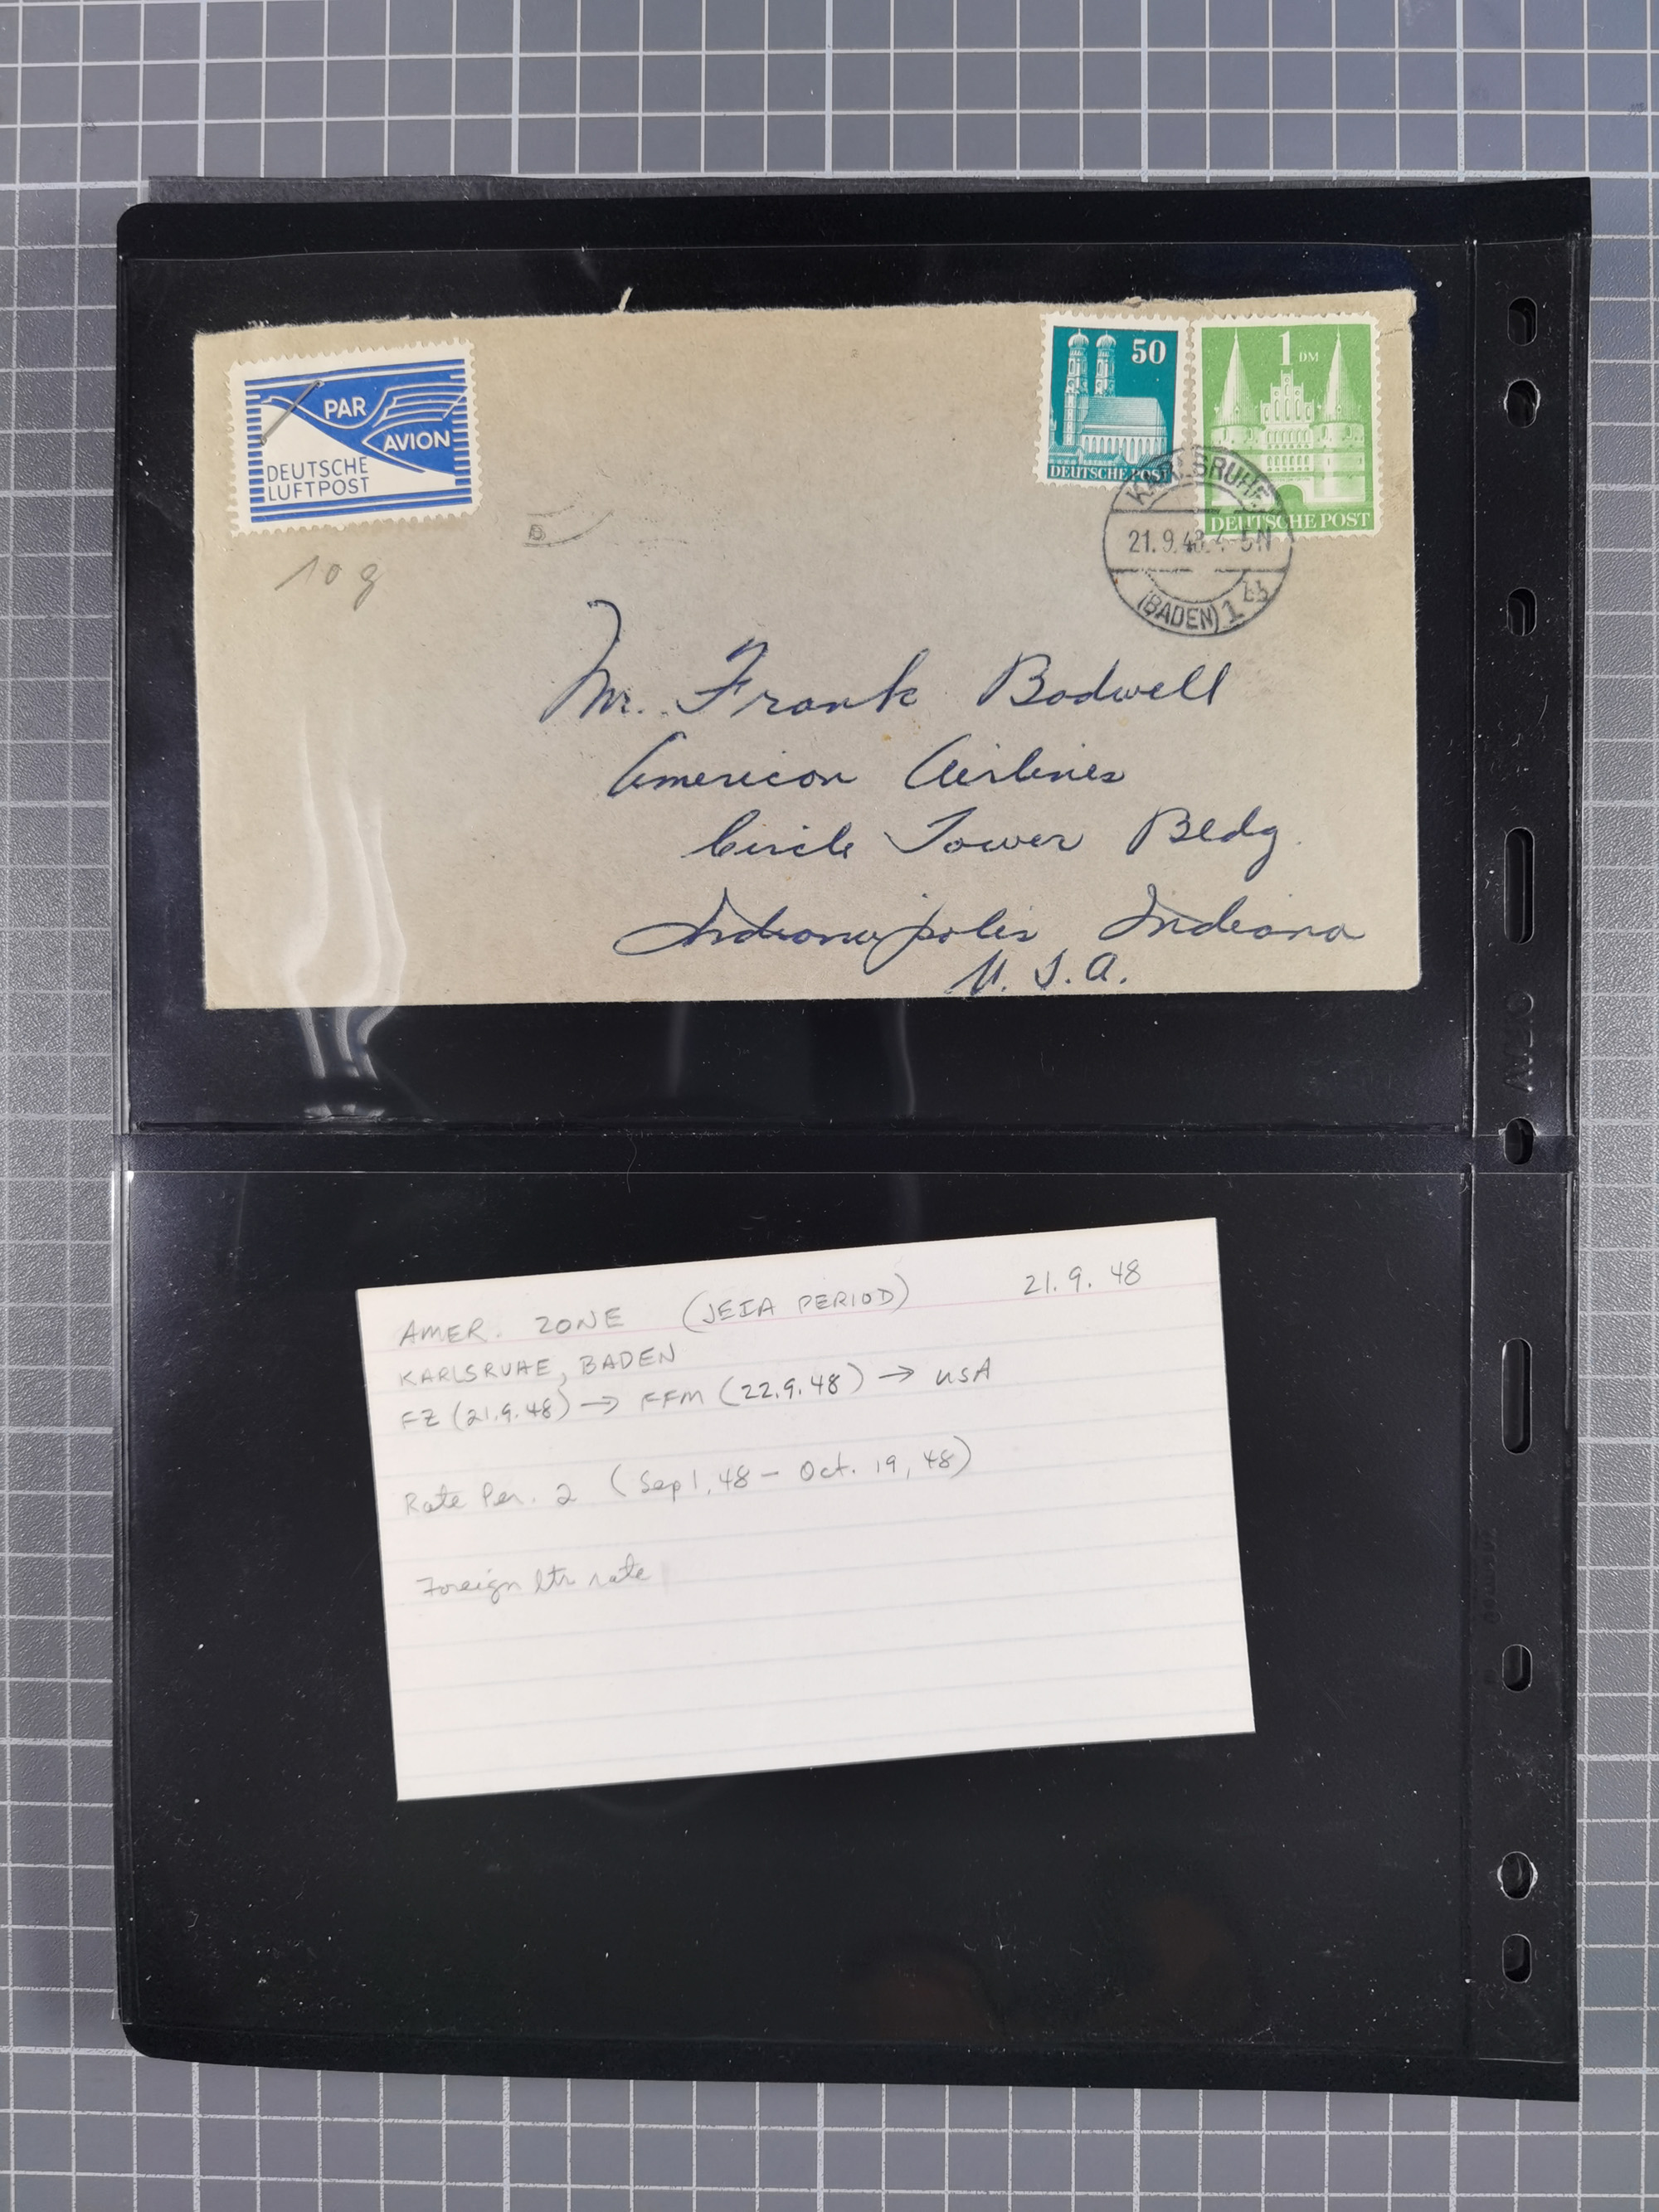 PAR
AVION
DEUTSCHE
LUFTPOST
50
DEUTSCHE POST
1 DM
DEUTSCHE POST
KARLSRUHE
21.9.48. 4-5N
(BADEN) 1 bb
10 g
Mr. Frank Bodwell
American Airlines
Circle Tower Bldg.
Indianapolis, Indiana
U.S.A.
AMER. ZONE (JEIA PERIOD) 21.9.48
KARLSRUHE, BADEN
FZ (21.9.48) → FFM (22.9.48) → USA
Rate Per. 2 (Sep 1, 48 - Oct. 19, 48)
Foreign ltr rate